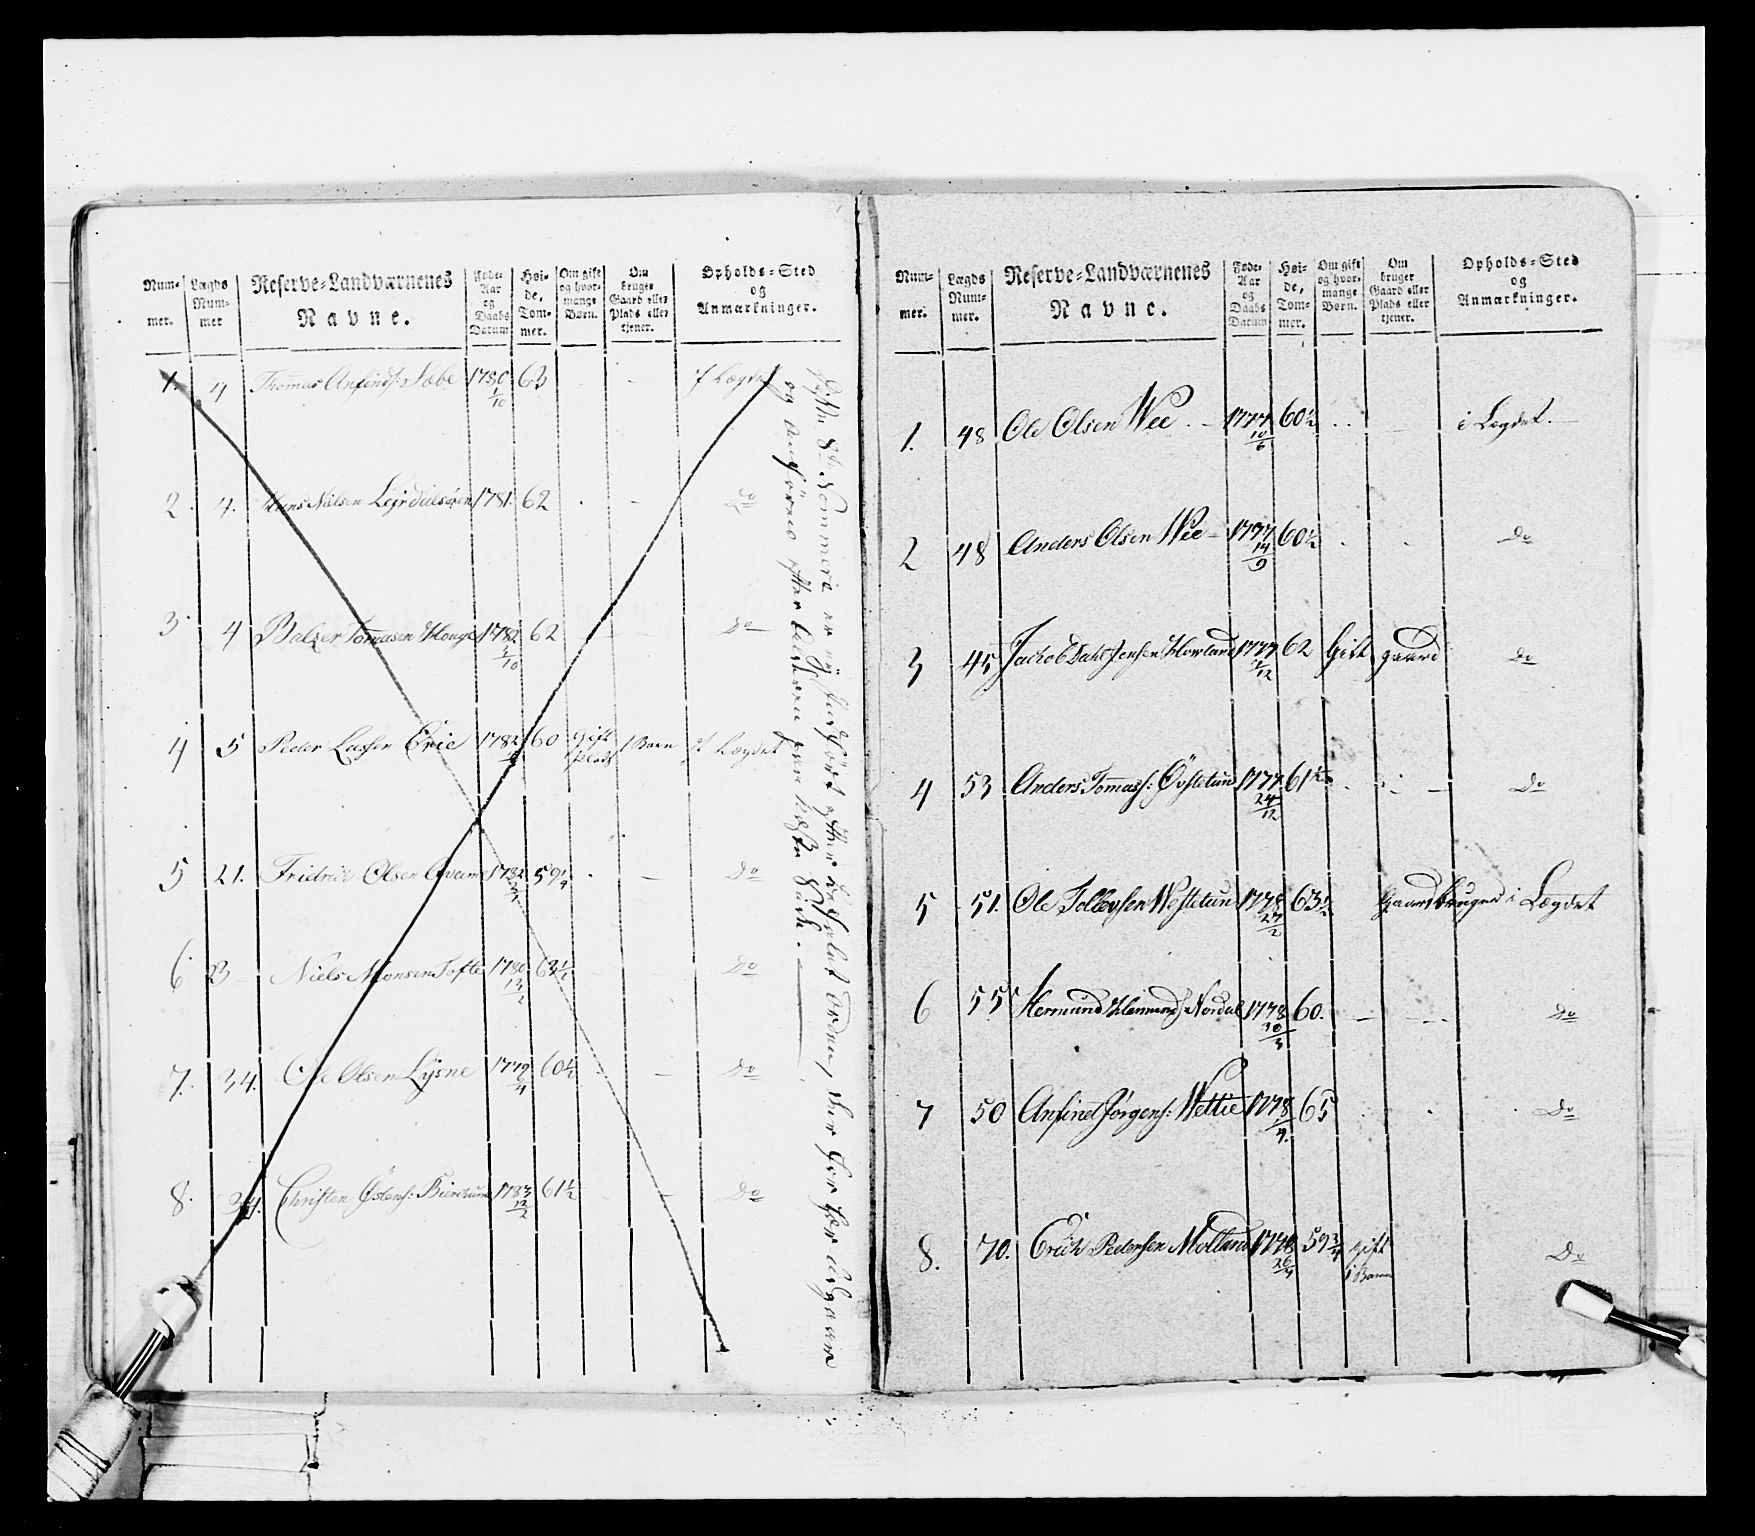 Num- mer. Lægds Num- mer Reserve-Landværnenes Navne. Føde- Aar og Daabs Datum Høi- de, Tom- mer. Om gift og hvor- mange Børn. Om bruger Gaard eller Plads eller tjener. Opholds-Sted og Anmærkninger.
1. 4 Thomas Anfinds: Sæbe 1780 1/10 63 - - i Lægdet
2. 4. Hans Nielsen Leirdalsøren 1781. 62 . - Do
3 4 Balzer Tomasen Houge 1782 3/10 62 - - Do
4 5 Peder Lassen Erie 1782 60 gift plads 1 Barn i Lægdet
5 21. Fridrich Olsen 1782 59 1/4 . - Do
6 23 - Niels Monsen Tofte 1780 13/2 63 1/2 - Do
7. 34. Ole Olsen Lysne 1779 6/4 60 1/2 - - Do
8. 34. Christen Østens: Bierchum 1783 12/2 61 1/2 - - Do
8te Nommere er nÿ indført efter befalet Orden, der for her udgaar
og anføres efter Alderen paa næste Side. -
Num- mer. Lægds Num- mer. Reserve-Landværnenes Navne. Føde- Aar og Daabs Datum Høi- de, Tom- mer. Om gift og hvor- mange Børn. Om bruger Gaard eller Plads eller tjener. Opholds-Sted og Anmærkninger.
1. 48 Ole Olsen Wee . - 1777 10/6 60 1/2 . . - i Lægdet. -
2 48 Anders Olsen Wee - 1777 14/9 60 1/2 . . Do
3 45 Jachob Dahl Jensen Howland 1777 1/12 62 Gift gaard Do
4 53 Anders Tomass: Øvstetun 1777 24/12 61 1/2 . - Do
5 51. Ole Tollevsen Westetun 1778 27/2 63 1/2 Gaardbruger i Lægdet
6 55 Hermund Hermunds: Nordal 1778 30/3 60. - - Do
7 50 Anfind Jørgens: Wettie 1778 /4. 65 . . Do
8. 70. Erich Pedersen Molland 1778 26/4 59 3/4 gift 1 Barn Do